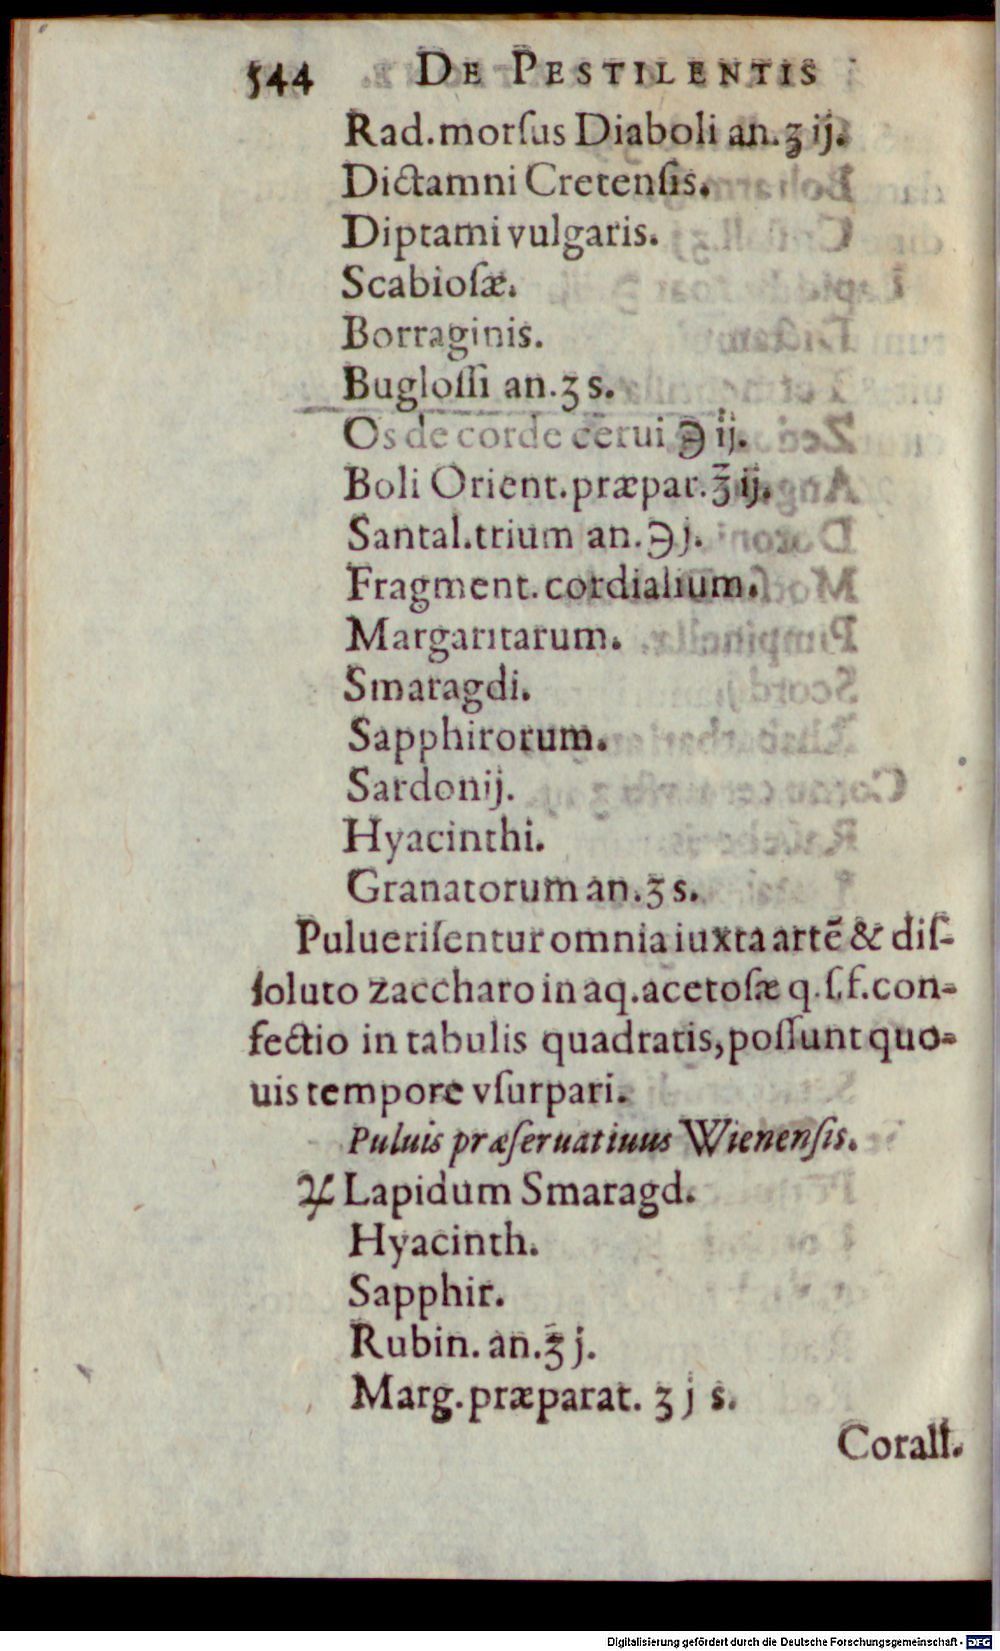 544 DE PESTILENTIS
Rad. morſus Diaboli an. ʒ ij.
Dictamni Cretenſis.
Diptami vulgaris.
Scabioſæ.
Borraginis.
Bugloſſi an. ʒ s.
Os de corde cerui ℈ ij.
Boli Orient. præpar. ʒ ij.
Santal. trium an. ℈ j.
Fragment. cordialium.
Margaritarum.
Smaragdi.
Sapphirorum.
Sardonij.
Hyacinthi.
Granatorum an. ʒ s.
Pulueriſentur omnia iuxta artē & diſ-
ſoluto zaccharo in aq. acetoſæ q. ſ. f. con-
fectio in tabulis quadratis, poſſunt quo-
uis tempore vſurpari.
Puluis præſeruatiuus Wienenſis.
♃ Lapidum Smaragd.
Hyacinth.
Sapphir.
Rubin. an. ʒ j.
Marg. præparat. ʒ j s.
Corall.
Digitalisierung gefördert durch die Deutsche Forschungsgemeinschaft - DFG